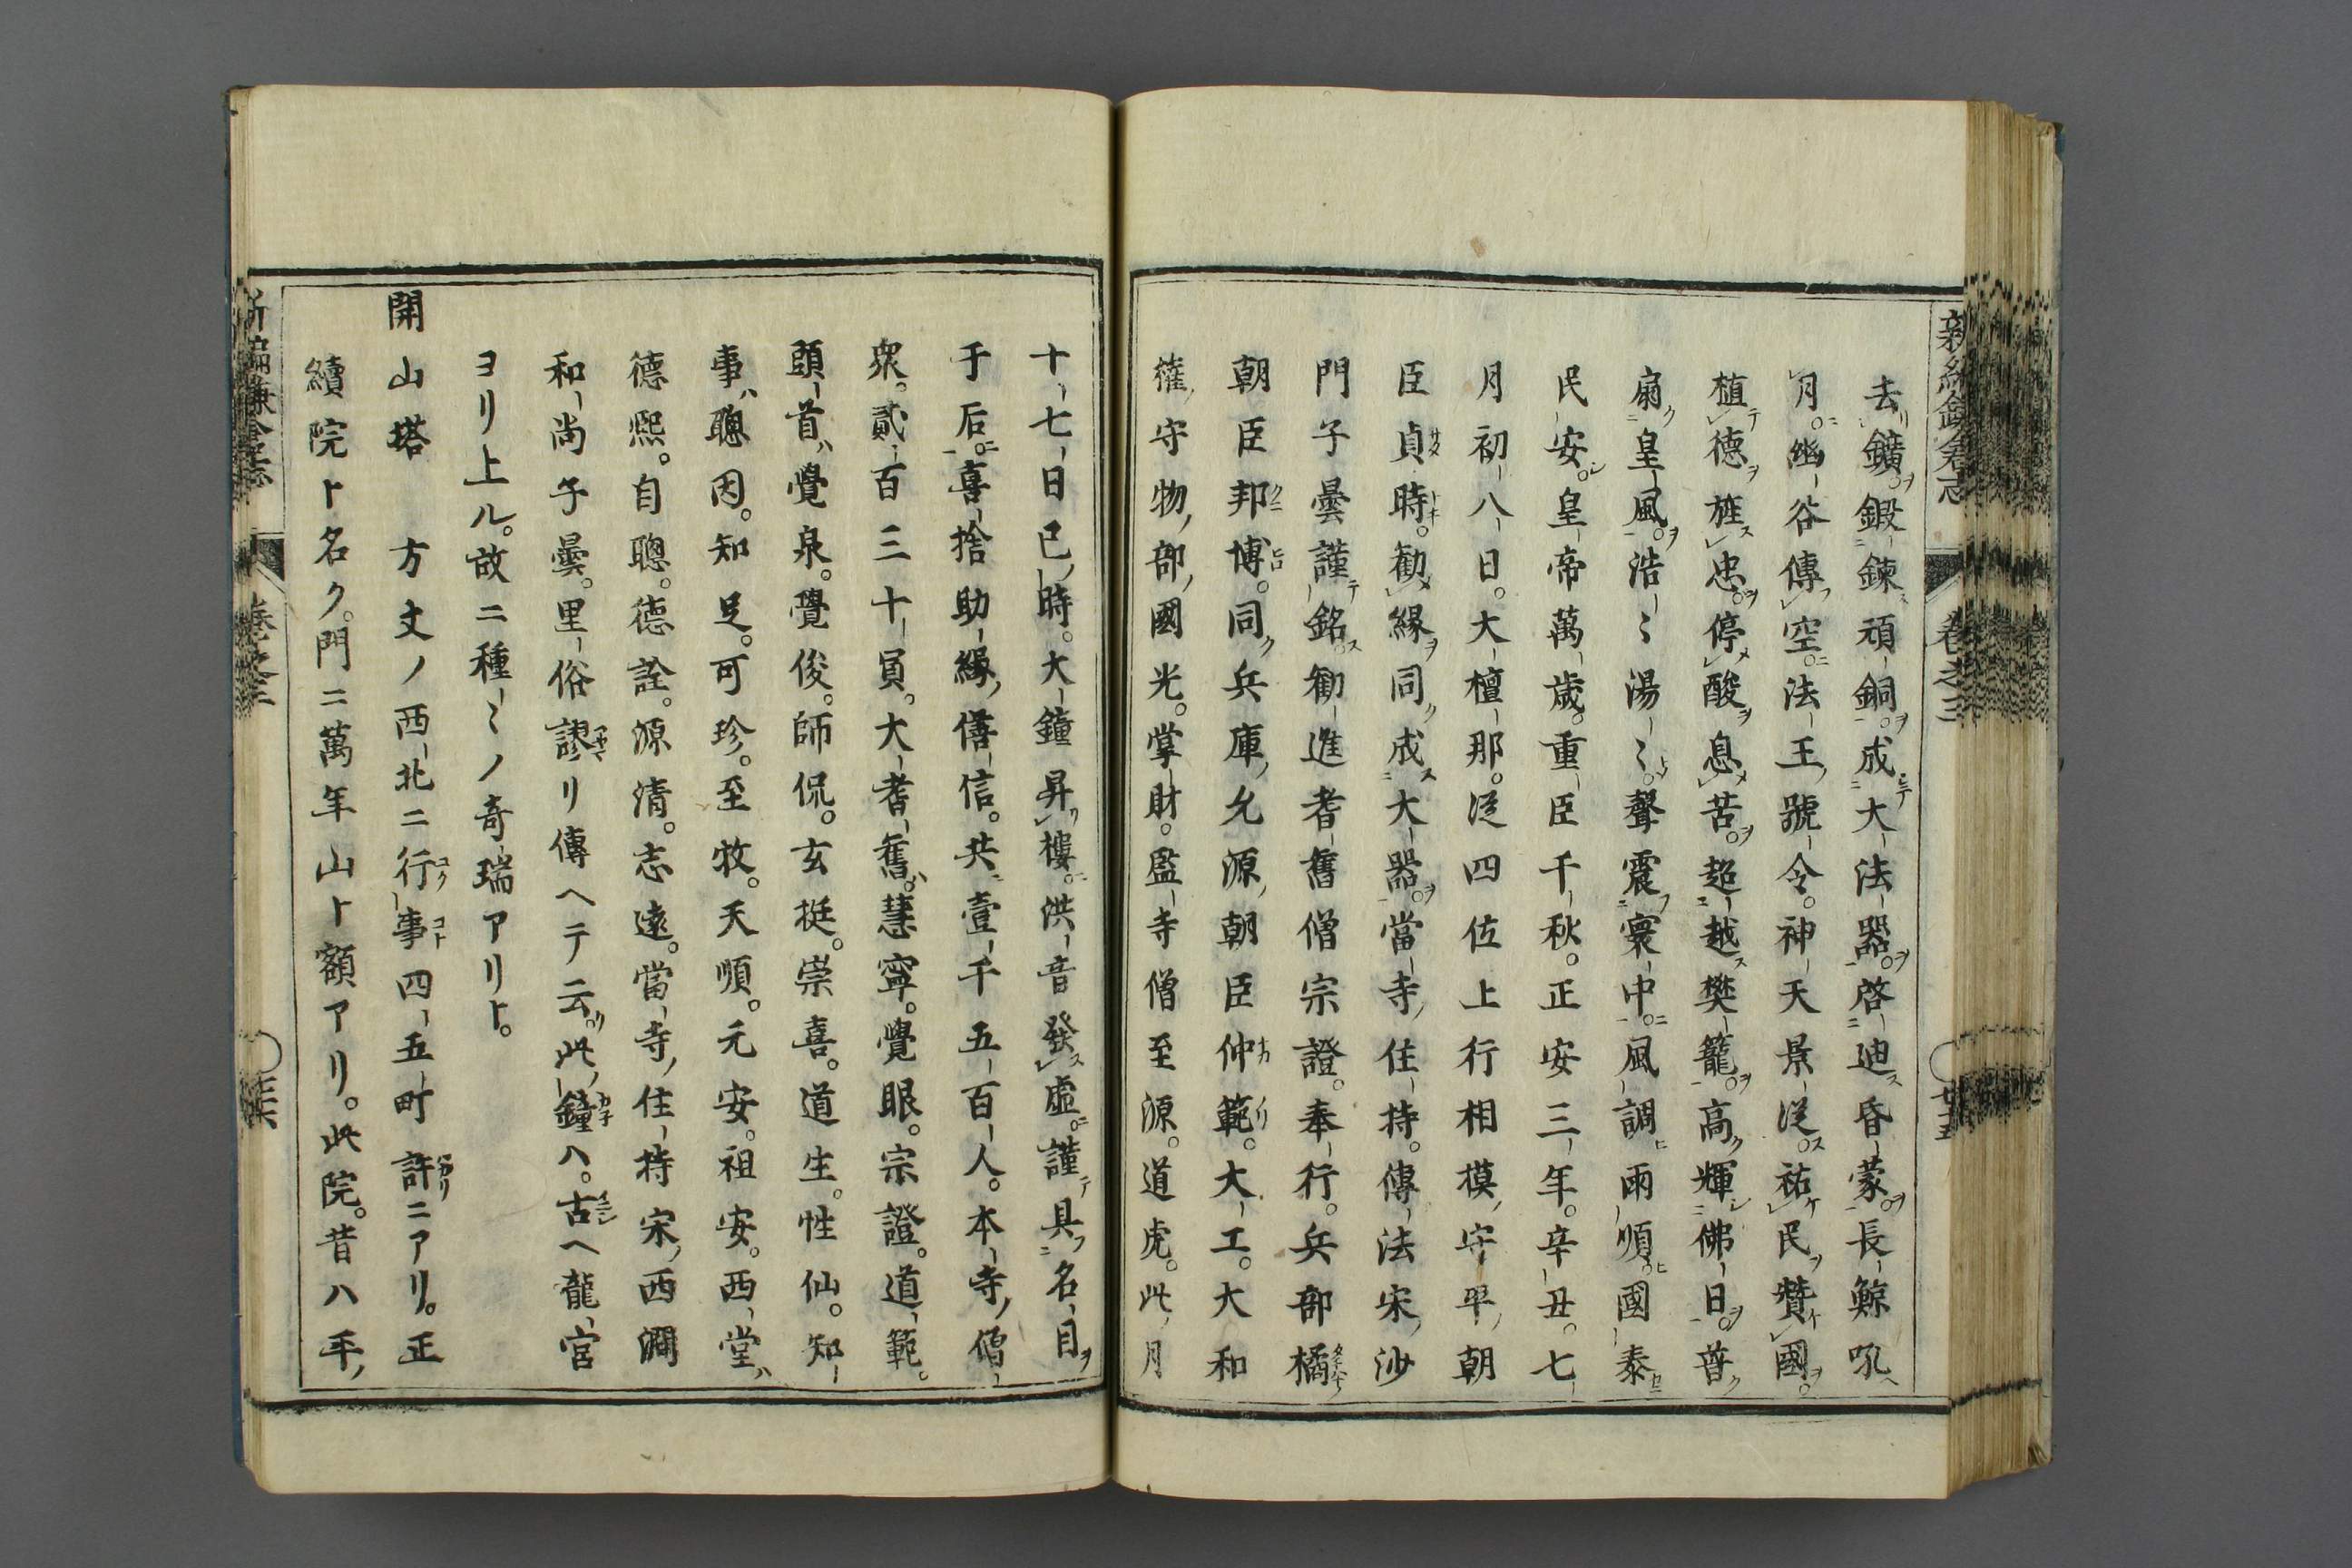 新編鎌倉志 卷之三 廿五
去鑛鍛鍊頑銅。成大法器。啓迪昏蒙。長鯨吼
月。幽谷傳空。法王號令。神天景從。祐民贊國。
植德旌忠。停酸息苦。超越樊籠。高輝佛日。普
扇皇風。浩〻湯〻。聲震寰中。風調雨順。國泰
民安。皇帝萬歲。重臣千秋。正安三年。辛丑。七
月初八日。大檀那。從四位上行相模守平朝
臣貞時。勸緣同成大器。當寺住持。傳法宋沙
門子曇謹銘。勸進耆舊僧宗證。奉行。兵部橘
朝臣邦博。同兵庫允源朝臣仲範。大工。大和
權守物部國光。掌財。監寺僧至源。道虎。此月
十七日巳時。大鐘昇樓。洪音發虛。謹具名目
于后。喜捨助緣。僐信。共壹千五百人。本寺僧
衆。貳百三十員。大耆舊。慧寧。覺眼。宗證。道範。
頭首。覺泉。覺俊。師侃。玄挺。崇喜。道生。性仙。知
事。聰因。知足。可珍。至牧。天順。元安。祖安。西堂。
德熙。自聰。德詮。源清。志遠。當寺住持宋西澗
和尚子曇。里俗謬リ傳ヘテ云。此鐘ハ。古ヘ龍宮
ヨリ上ル。故ニ種〻ノ奇瑞アリト。
開山塔 方丈ノ西北ニ行事四五町許ニアリ。正
續院ト名ク。門ニ萬年山ト額アリ。此院。昔ハ平
新編鎌倉志 卷之三